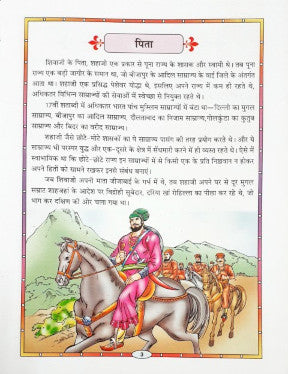 पिता
शिवाजी के पिता, शहाजी एक प्रकार से पूना राज्य के शासक और स्वामी थे। तब पूना
राज्य एक बड़ी जागीर के समान था, जो बीजापुर के आदिल साम्राज्य के वाई जिले के अंतर्गत
आता था। शहाजी एक प्रसिद्ध पेशेवर योद्धा थे, इसलिए अपने राज्य में कम ही रहते थे,
अधिकतर विभिन्न साम्राज्यों की सेवाओं में स्वेच्छा से नियुक्त रहते थे।
17वीं शताब्दी में अधिकतर भारत पांच मुस्लिम साम्राज्यों में बंटा था—दिल्ली का मुगल
साम्राज्य, बीजापुर का आदिल साम्राज्य, दौलताबाद का निजाम साम्राज्य, गोलकुंडा का कुतुब
साम्राज्य और बिदर का वरीद साम्राज्य।
शहाजी जैसे छोटे-मोटे शासकों का ये साम्राज्य प्यादों की तरह प्रयोग करते थे। और ये
साम्राज्य भी परस्पर युद्ध और एक-दूसरे के क्षेत्र में सेंधमारी करने में ही व्यस्त रहते थे। ऐसे में
स्वाभाविक था कि छोटे-छोटे राज्य इन साम्राज्यों में से किसी एक के प्रति निष्ठावान न होकर
अपने हितों को सामने रखकर इनसे संबंध बनाएं।
जब शिवाजी अपनी माता जीजाबाई के गर्भ में थे, तब शहाजी अपने घर से दूर मुगल
सम्राट शाहजहां के आदेश पर विद्रोही सूबेदार, दरिया खां रोहिल्ला का पीछा कर रहे थे, जो
भाग कर दक्षिण की ओर चला गया था।
3